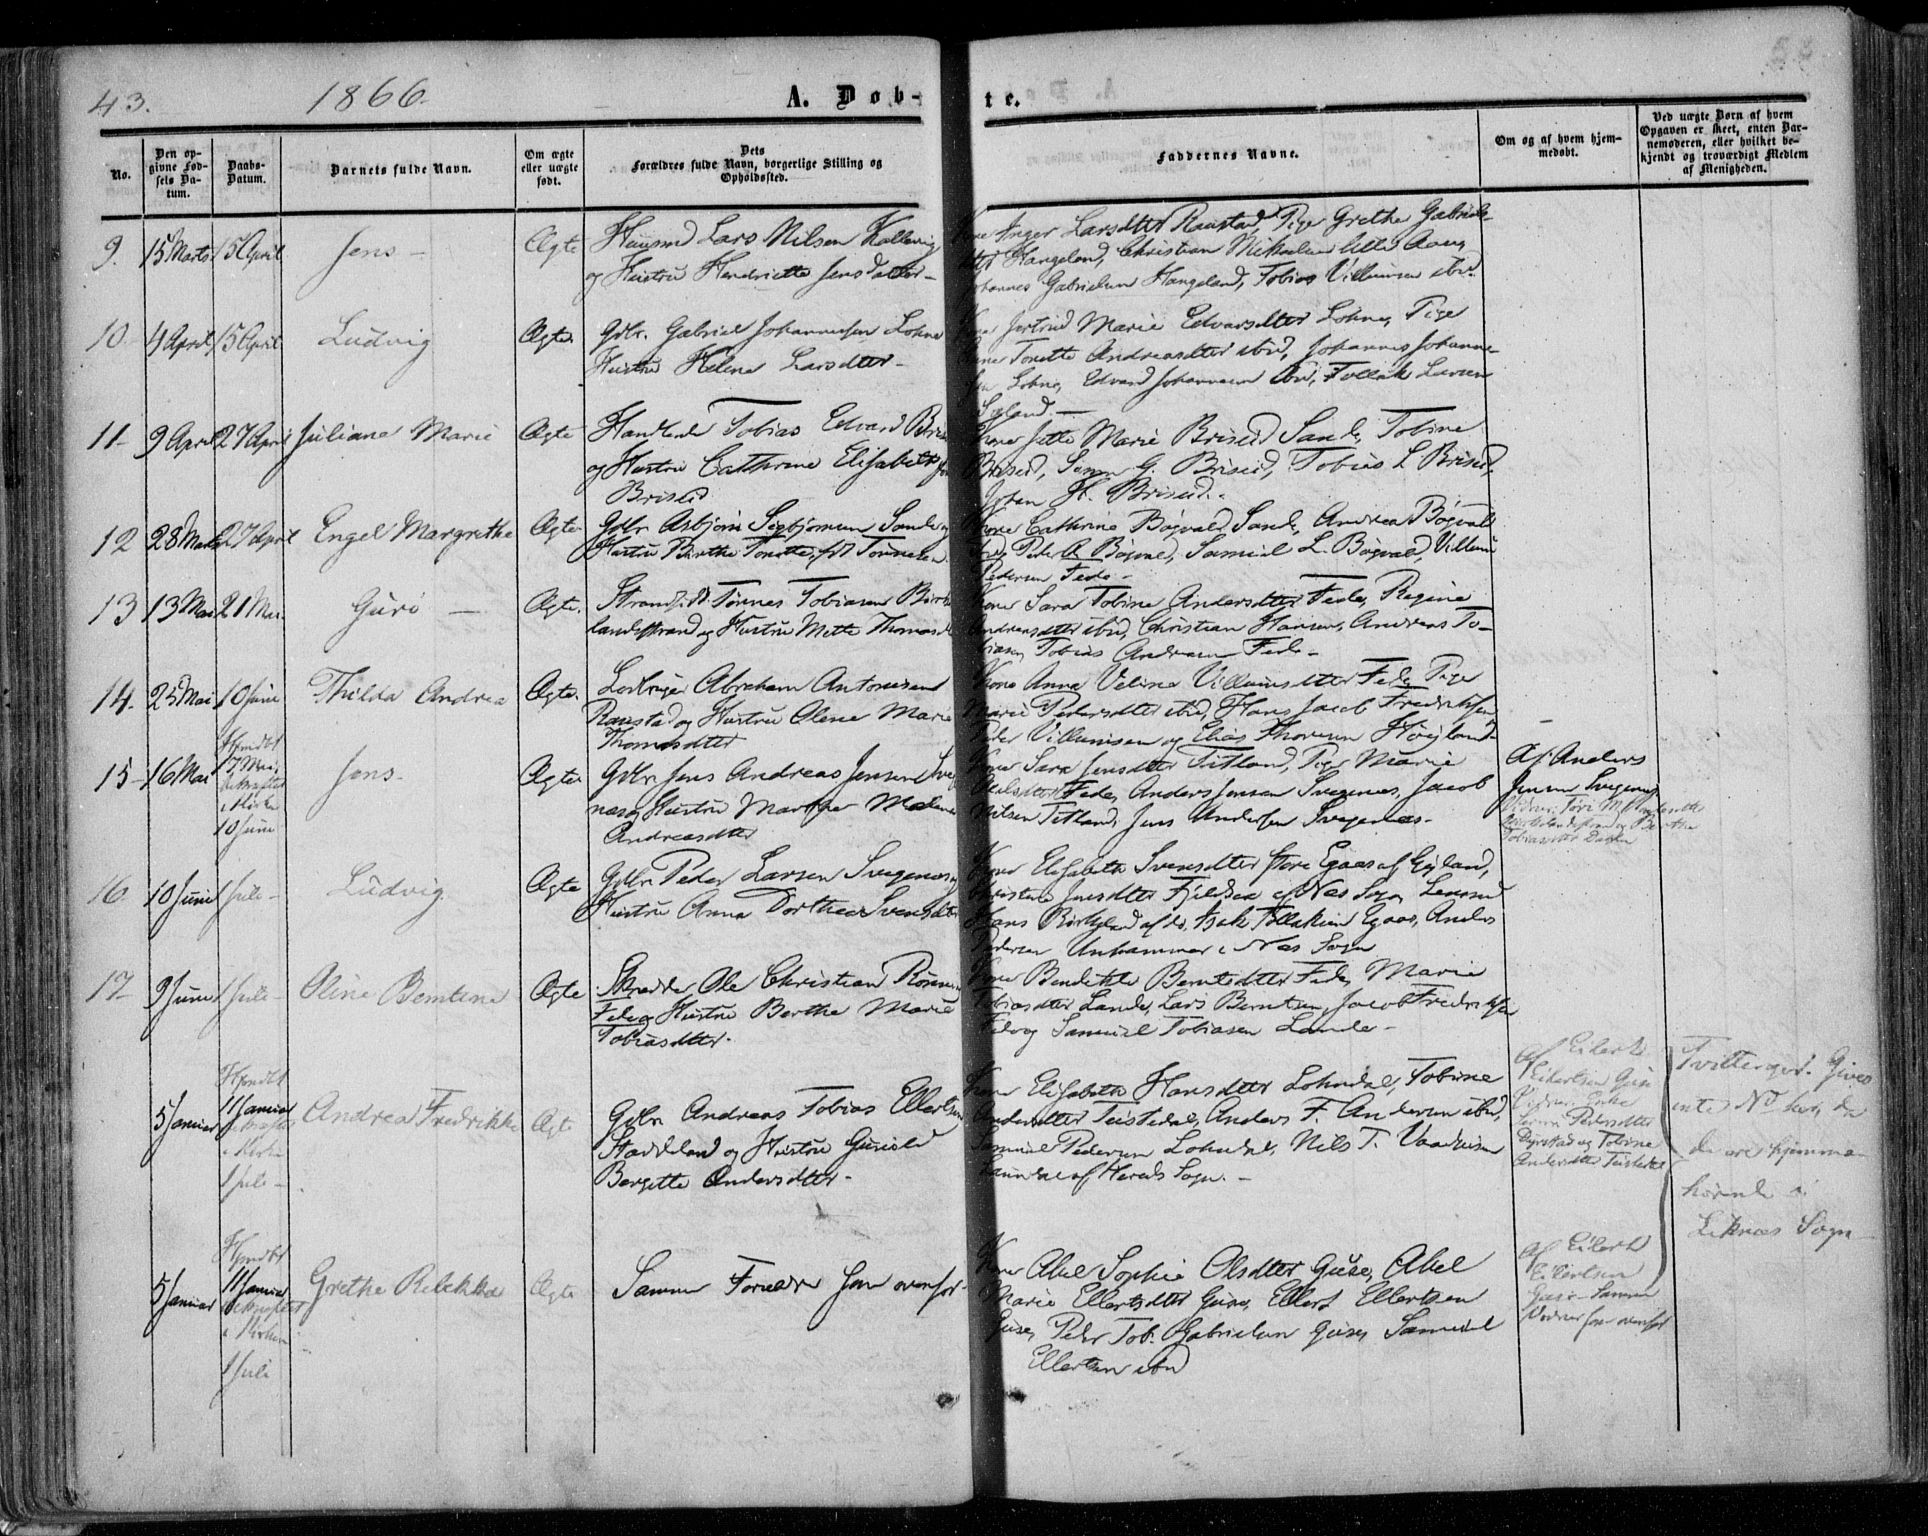 43.
1866.
A. Døb-
te.
No.
Den op-
givne Fød-
sels Da-
tum.
Daabs-
Datum.
Barnets fulde Navn.
Om ægte
eller uægte
født.
Dets
Forældres fulde Navn, borgerlige Stilling og
Opholdssted.
Faddernes Navne.
Om og af hvem hjem-
medøbt.
Ved uægte Børn af hvem
Opgaven er skeet, enten Bar-
nemoderen, eller hvilket be-
kjendt og troværdigt Medlem
af Menigheden.
9. 15 Marts 15 April Jens - Ægte
Huusmd Lars Nilsen Kallevig
og Hustru Hendriette Jensdatter -
Inger Larsdtter Raustad, Pige Grethe Gabriels-
dtter Hangeland, Christian Mikkelsen lille
Johannes Gabrielsen Hangeland, Tobias Villumsen ibid.
10 4 April 15 April Ludvig Ægte.
Gdbr. Gabriel Johannesen Lohne
Hustru Helene Larsdtter -
Kone Jertrud Marie Edvarsdtter Lohne, Pige
Tonette Andreasdtter ibid, Johannes Johanne-
sen Lohne, Edvard Johannesen ibid, Tollak Larsen
11- 9 April 27 April Juliane Marie Ægte
Handlende Tobias Edvard
og Hustru Cathrine Elisabeth
Briseid
Kone Jette Marie Briseid Sande, Tobine
Briseid, Søren G. Briseid, Tobias L Briseid,
Johan H. Briseid.
12 28 27 April Engel Margrethe Ægte
Gdbr Asbjørn Sigbjørnsen Sande og
Hustru Berthe Tonette, fdt Tønnesen.
Kone Cathrine Bøgvald Sande, Andrea Bøgvald
Peder A Bøgvald, Samuel L. Bøgvald, Villum
Pedersen Fede -
13 13 Mai 21 Mai. Guro - Ægte.
Strands. Tønnes Tobiasen Birke-
landsstrand og Hustru Mette Thomasd
Kone Sara Tobine Andersdtter Fede, Regine
Andreasdtter ibid, Christian Hansen, Andreas To-
biasen, Tobias Andreasen Fede -
14. 25 Mai 10 Juni Thilda Andrea Ægte.
Abraham Antonisen
Raustad og Hustru Olene Marie
Thomasdtter
Kone Anna Veline Villumsdtter Fede, Pige
Marie Pedersdtter ibid, Hans Jacob Fredriksen
Peder Villumsen og Elias Thorsen Høigland
15- 16 Mai
Hjmdbt
17 Mai,
bekræftet
i Kirken
10 Juni
Jens - Ægte
Gdbr Jens Andreas Jensen Sveg
næs og Hustru Marthe Malene
Andreasdtter
Kone Sara Jensdtter Titland, Pige Marie
Nilsdtter Fede, Anders Jensen Svegenæs, Jacob
Nilsen Titland, Jens Andersen Svegenæs.
Af Anders
Jensen Svegenæs
16. 10 Juni 1 Juli - Ludvig. Ægte
Gdbr Peder Larsen Svegenæs og
Hustru Anna Dorthea Svensdtter
Kone Elisabeth Svensdtter store Egaas af Gyland,
Christine Jensdtter Fjeldsaa af Næs Sogn,
Hans Birkeland af do, Isak Tollaksen Egaas, Anders
Pedersen Unhammer i Næs Sogn
17- 9 Juni 1 Juli - Oline Berntine Ægte
Skrædder Ole Christian
Fede og Hustru Berthe Marie
Tobiasdtter.
Kone Bendikte Berntsdtter Fede, Marie
Tobiasdtter Lande, Lars Berntsen, Jacob Fredriksen
Fede og Samuel Tobiasen Lande -
5 Januar
Hjmdbt
11 Januar
i Kirken
1 Juli -
Andrea Fredrikke Ægte
Gdbr Andreas Tobias Ellertsen
Stordeland og Hustru Gunild
Bergitte Andersdtter -
Kone Elisabeth Hansdtter Lohndal, Tobine
Andersdtter Teistedal, Anders F. Andersen ibid,
Samuel Pedersen Lohndal, Nils T.
af Hereds Sogn. -
Af Eilert
Eilertsen Guse
Pedersdtter
og Tobine
Andersdtter Teistedal
Tvillinger. Gives
inte No her, da
de ere hjemme-
hørende i
Liknæs Sogn
5 Januar
Hjmdbt
11 Januar
bekræftet
i Kirken
1 Juli
Grethe Rebekka Ægte
Samme Forældre som ovenfor -
Kone Abel Sophie Olsdtter Guse, Abel
Marie Ellertsdtter Guse, Ellert Ellertsen
Guse, Peder Tob. Gabrielsen Guse, Samuel
Ellertsen ibid
Af Eilert
Eilertsen
Guse - Samme
Vidner som ovenfor